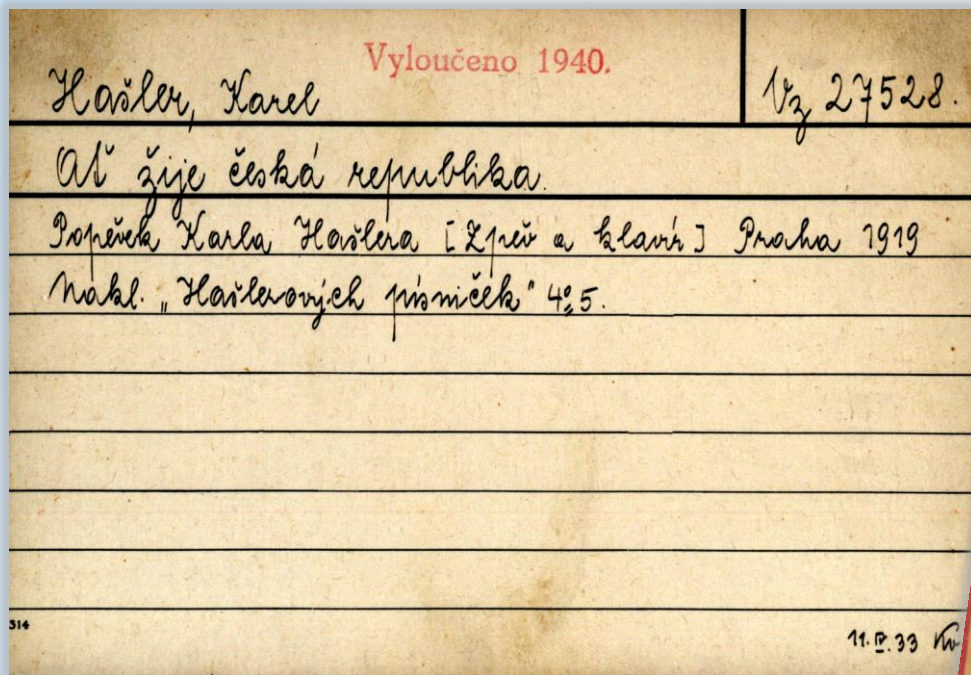 Vyloučeno 1940.
Hašler, Karel
Vz 27528.
Ať žije česká republika.
Popěvek Karla Hašlera [Zpěv a klavír] Praha 1919
Nákl. „Hašlerových písniček" 4° 5.
314
11.IV.33